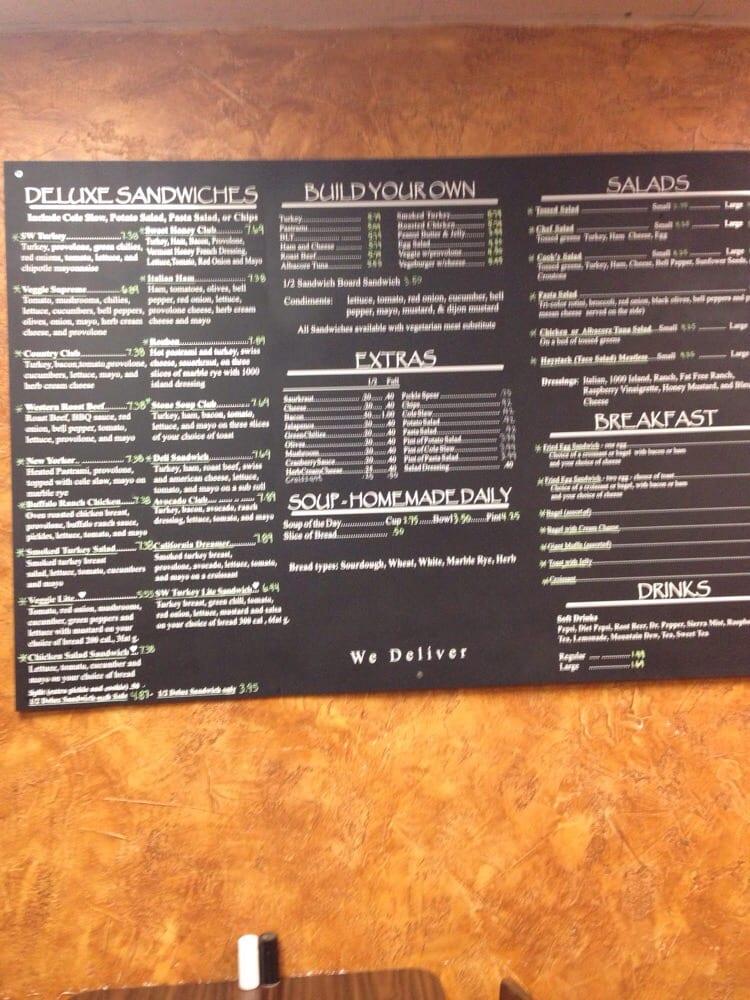 DELUXE SANDWICHES
Include Cole Slaw, Potato Salad, Pasta Salad, or Chips
SW Turkey 7.38
Turkey, provolone, green chilies,
red onions, tomato, lettuce, and
chipotle mayonnaise
Veggie Supreme 6.89
Tomato, mushrooms, chilies,
lettuce, cucumbers, bell peppers,
olives, onion, mayo, herb cream
cheese, and provolone
Country Club 7.38
Turkey, bacon, tomato, provolone,
cucumbers, lettuce, mayo, and
herb cream cheese
Western Roast Beef 7.38
Roast Beef, BBQ sauce, red
onion, bell pepper, tomato,
lettuce, provolone, and mayo
New Yorker 7.38
Heated Pastrami, provolone,
topped with cole slaw, mayo on
marble rye
Buffalo Ranch Chicken 7.38
Oven roasted chicken breast,
provolone, buffalo ranch sauce,
pickles, lettuce, tomato, and mayo
Smoked Turkey Salad 7.38
Smoked turkey breast
salad, lettuce, tomato, cucumbers
and mayo
Veggie Lite 5.55
Tomato, red onion, mushrooms,
cucumber, green peppers and
lettuce with mustard on your
choice of bread 200 cal.,
Chicken Salad Sandwich 7.38
Lettuce, tomato, cucumber and
mayo on your choice of bread
Split (extra pickle and cookie) .50
Sweet Honey Club 7.69
Turkey, Ham, Bacon, Provolone,
Vermont Honey French Dressing,
Lettuce, Tomato, Red Onion and Mayo
Italian Ham 7.38
Ham, tomatoes, olives, bell
pepper, red onion, lettuce,
provolone cheese, herb cream
cheese and mayo
Reuben 7.89
Hot pastrami and turkey, swiss
cheese, saurkraut, on three
slices of marble rye with 1000
island dressing
Stone Soup Club 7.69
Turkey, ham, bacon, tomato,
lettuce, and mayo on three slices
of your choice of toast
Deli Sandwich 7.69
Turkey, ham, roast beef, swiss
and american cheese, lettuce,
tomato, and mayo on a sub roll
Avocado Club 7.89
Turkey, bacon, avocado, ranch
dressing, lettuce, tomato, and mayo
California Dreamer 7.89
Smoked turkey breast,
provolone, avocado, lettuce, tomato,
and mayo on a croissant
SW Turkey Lite Sandwich 6.94
Turkey breast, green chili, tomato,
red onion, lettuce, mustard and salsa
on your choice of bread 300 cal.,
1/2 Deluxe Sandwich only 3.95
BUILD YOUR OWN
Turkey
Pastrami
BLT
Ham and Cheese
Roast Beef
Albacore Tuna
Smoked Turkey
Roasted Chicken
Peanut Butter & Jelly
Egg Salad
Veggie w/provolone
Vegeburger w/cheese
1/2 Sandwich Board Sandwich 3.59
Condiments: lettuce, tomato, red onion, cucumber, bell
pepper, mayo, mustard, & dijon mustard
All Sandwiches available with vegetarian meat substitute
EXTRAS
1/2 Full
Saurkraut .30 .40
Cheese .30 .40
Bacon
Jalapenos
Green Chilies
Olives
Mushroom
Cranberry Sauce
Herb Cream Cheese
Pickle Spear
Chips
Cole Slaw
Potato Salad
Pasta Salad
Pint of Potato Salad
Pint of Cole Slaw
Pint of Pasta Salad
Salad Dressing .40
SOUP - HOMEMADE DAILY
Soup of the Day Cup 2.95 Bowl 3.50 Pint 4.25
Slice of Bread .50
Bread types: Sourdough, Wheat, White, Marble Rye, Herb
We Deliver
SALADS
Tossed Salad Small Large
Chef Salad Small Large
Tossed greens, Turkey, Ham, Cheese, Egg
Cook's Salad Small Large
Tossed greens, Turkey, Ham, Cheese, Bell Pepper, Sunflower Seeds,
Croutons
Pasta Salad
Tri-color rotini, broccoli, red onion, black olives, bell peppers and
Chicken or Albacore Tuna Salad Small Large
On a bed of tossed greens
Haystack (Taco Salad) Meatless Small Large
Dressings: Italian, 1000 Island, Ranch, Fat Free Ranch,
Raspberry Vinaigrette, Honey Mustard, and
Cheese
BREAKFAST
Fried Egg Sandwich - one egg
Choice of a croissant or bagel with bacon or ham
and your choice of cheese
Fried Egg Sandwich - two egg - choice of toast
Choice of a croissant or bagel, with bacon or ham
and your choice of cheese
Bagel (assorted)
Bagel with Cream Cheese
Giant Muffin (assorted)
Toast with Jelly
Croissant
DRINKS
Soft Drinks
Pepsi, Diet Pepsi, Root Beer, Dr. Pepper, Sierra Mist,
Tea, Lemonade, Mountain Dew, Tea, Sweet Tea
Regular 1.49
Large 1.69